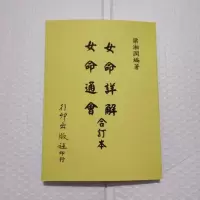 梁湘潤編著
女命詳解
女命通會
合訂本
行卯出版社印行